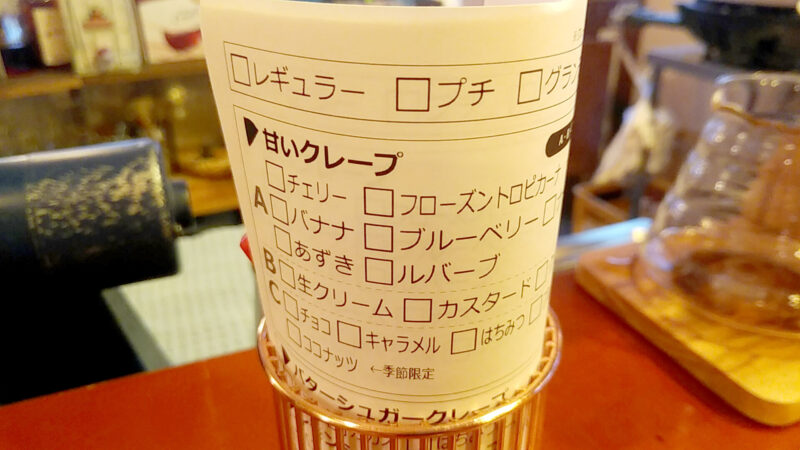 □レギュラー □プチ □グラン
甘いクレープ
A □チェリー □フローズントロピカーナ
□バナナ □ブルーベリー
□あずき □ルバーブ
B □生クリーム □カスタード
C □チョコ □キャラメル □はちみつ
□ココナッツ ←季節限定
バターシュガークレープ